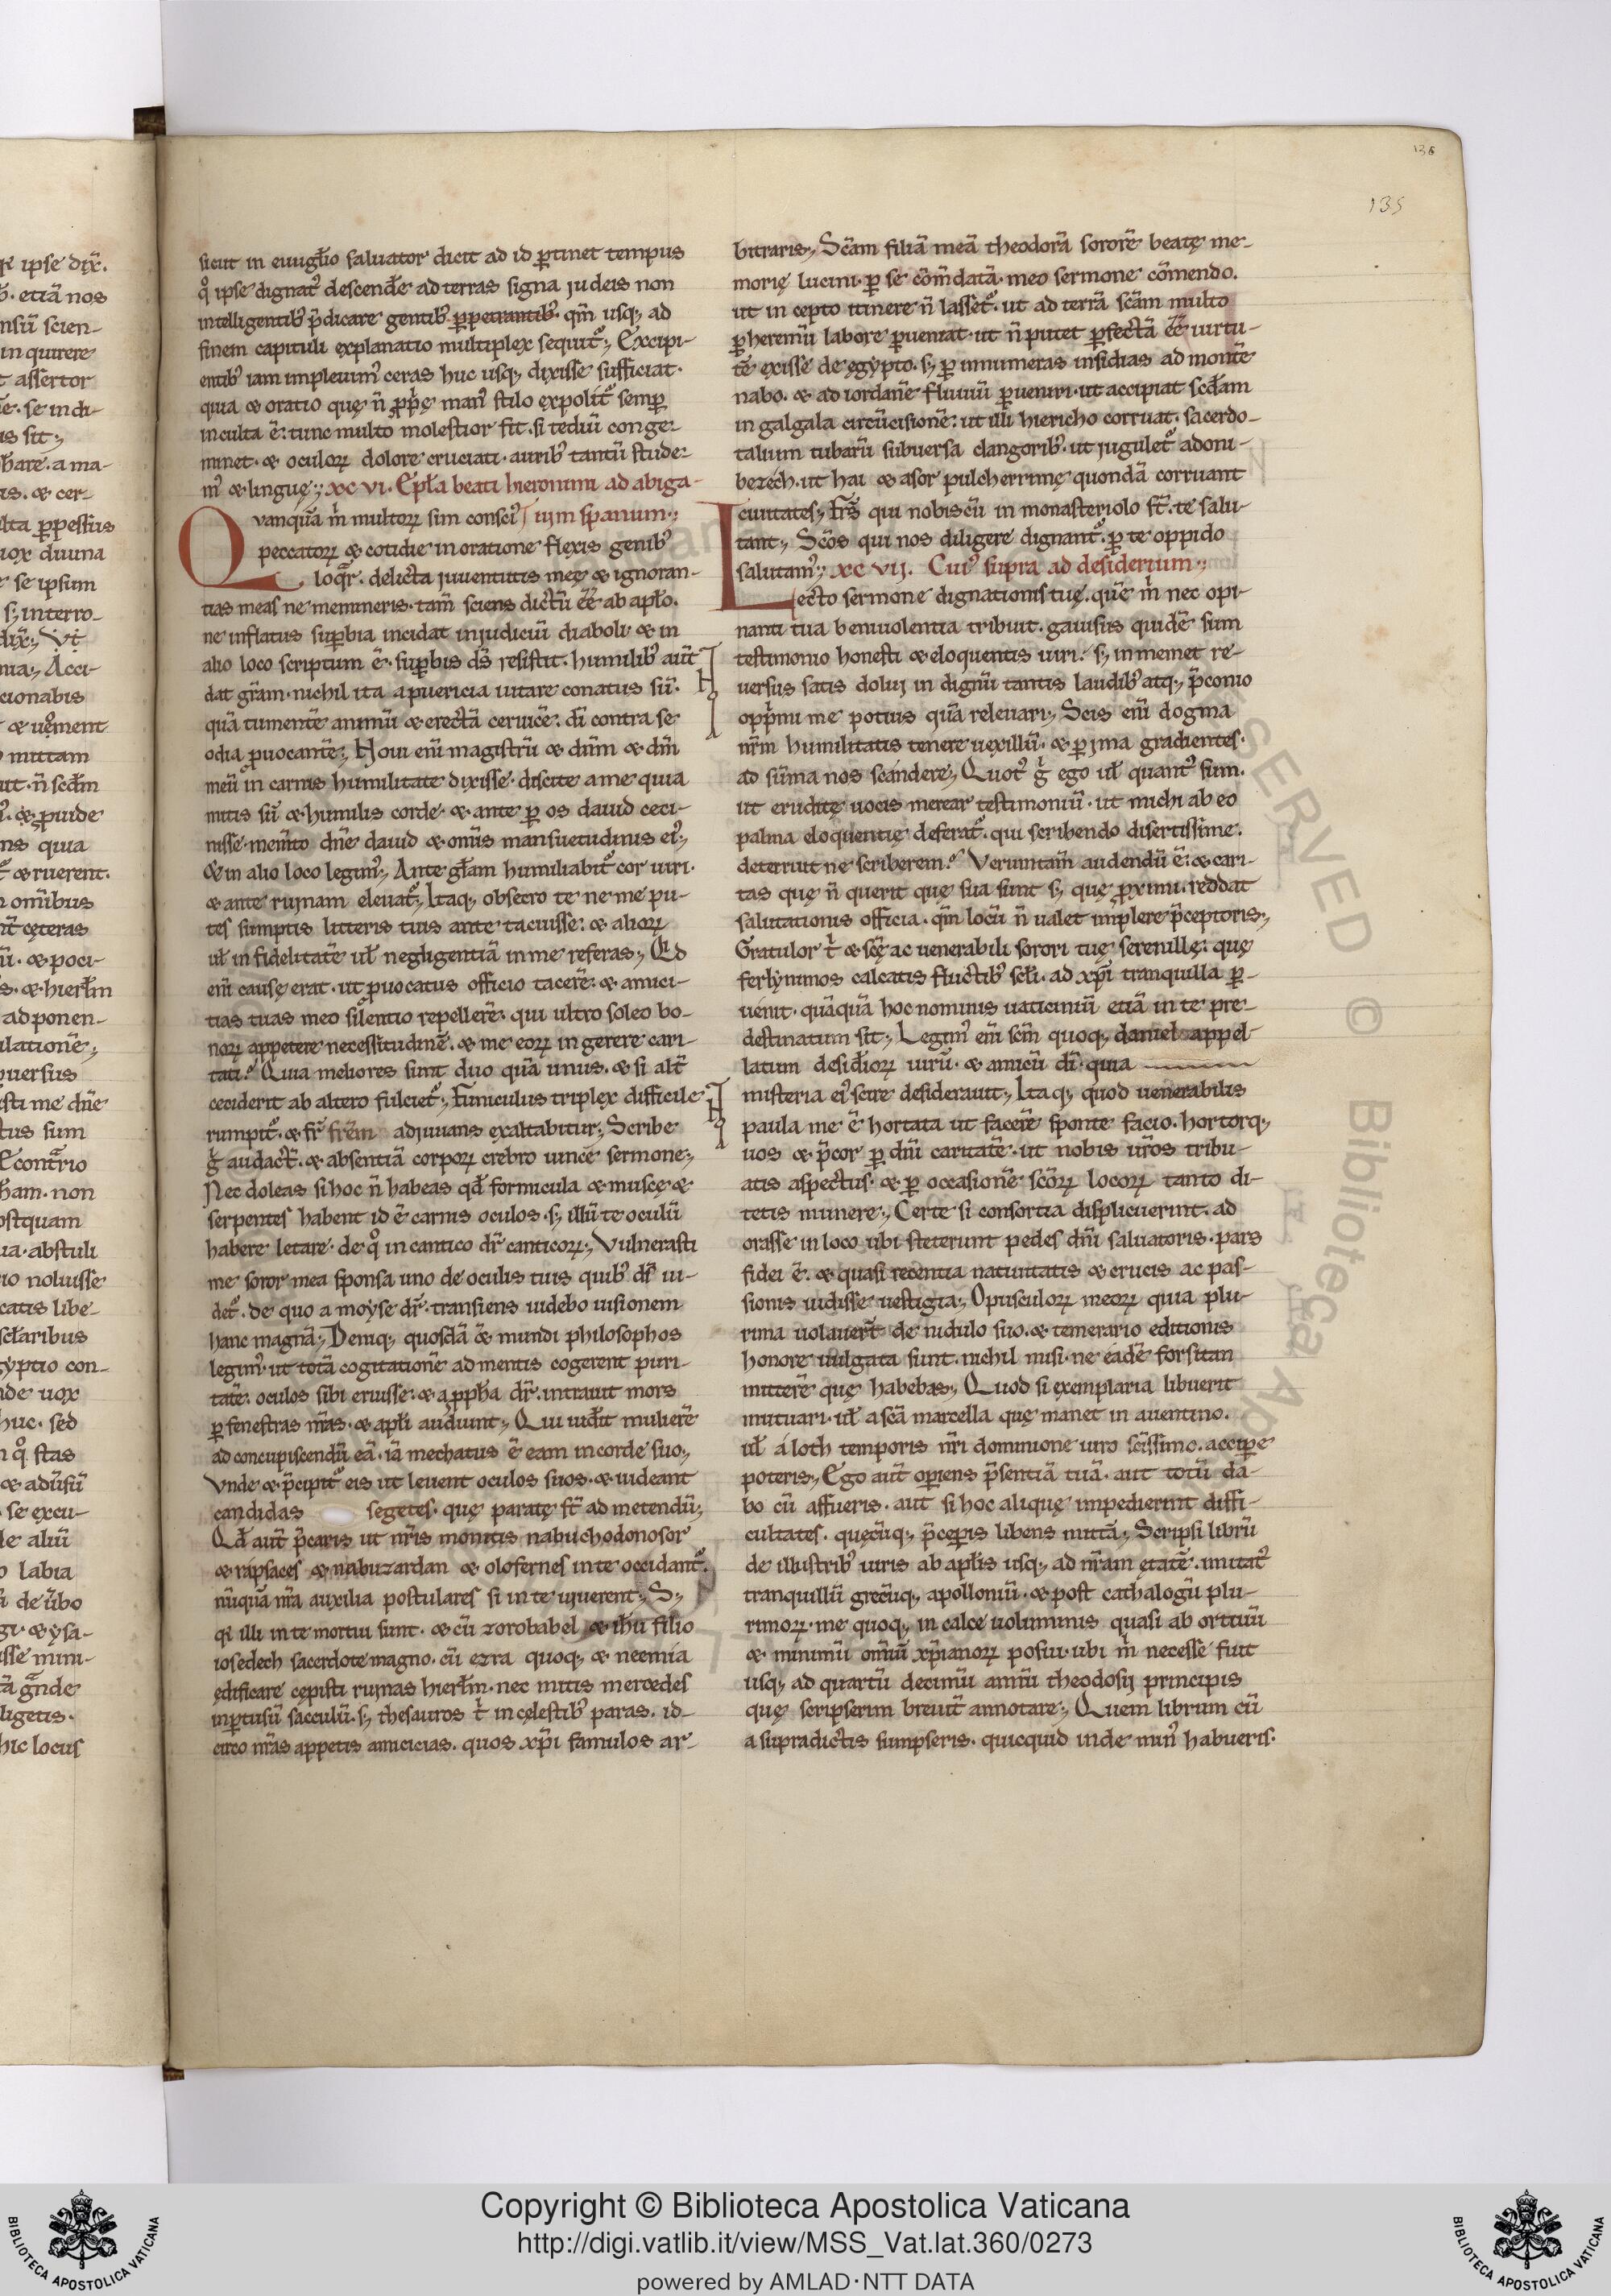 136
135
sicut in euuglio saluator dicit ad id ꝑtinet tempus
qͦ ipse dignatꝰ descendẽ ad terras signa judeis non
intelligentibꝰ p̃dicare gentibꝰ ꝑpetrantibꝰ. qm̃ usqꝫ ad
finem capituli explanatio multiplex sequit᷑; Excipi-
entibꝰ iam impleuimꝰ ceras huc usqꝫ dixisse sufficiat.
quia & oratio quę ñ ꝓp̃ę manꝰ stilo expolit᷑ semꝑ
inculta ẽ. tunc multo molestior fit. si tediũ conge-
minet. & oculoꝝ dolore cruciati. auribꝰ tantũ stude-
mꝰ & linguę; xc vi. Epɫa beati hieronimi ad abiga-
Qvanquã m̃ multoꝝ sim consciꝰ ium spanum;
peccatoꝝ & cotidie in oratione flexis genibꝰ
loq̃r. delicta juuentutis meę & ignoran-
tias meas ne memineris. tam̃ sciens dictũ ẽẽ ab apɫo.
ne inflatus suꝑbia incidat in judiciũ diaboli & in
alio loco scriptum ẽ. suꝑbis ds̃ resistit. humilibꝰ aut̃
dat gr̃am. nichil ita a puericia uitare conatus sũ.
quã tumentẽ animũ & erectã ceruicẽ. di contra se
odia ꝓuocantẽ; Noui eni magistrũ & dñm & dm̃
meũ in carnis humilitate dixisse. discite a me quia
mitis sũ & humilis corde. & ante ꝑ os dauid ceci-
nisse. mem̃to dñe dauid & om̃is mansuetudinis eiꝰ;
& in alio loco legimꝰ; Ante gɫam humiliabit᷑ cor uiri.
& ante rujnam eleuat᷑; Itaqꝫ obsecro te ne me pu-
tes sumptis litteris tuis ante tacuisse. & alioꝝ
uɫ in fidelitatẽ uɫ negligentiã in me referas; Qd
eni causę erat. ut ꝓuocatus officio tacerẽ. & amici-
tias tuas meo silentio repellerẽ. qui ultro soleo bo-
noꝝ appetere necessitudinẽ. & me eoꝝ in gerere cari-
tati? Quia meliores sunt duo quã unus. & si alt̃
ceciderit ab altero fulciet᷑; Funiculus triplex difficile
rumpit᷑. & fr̃ fr̃em adjuuans exaltabitur; Scribe
g̃ audact̃. & absentiã corpoꝝ crebro uince sermone;
Nec doleas si hoc ñ habeas qđ formicula & muscę &
serpentes habent id ẽ carnis oculos. sꝫ illũ te oculũ
habere letare. de qͦ in cantico dr̃ canticoꝝ; Vulnerasti
me soror mea sponsa uno de oculis tuis quibꝰ ds̃ ui-
det᷑. de quo a moyse dr̃. transiens uidebo uisionem
hanc magnã; Deniqꝫ quosdã & mundi philosophos
legimꝰ. ut totã cogitationẽ ad mentis cogerent puri-
tatẽ. oculos sibi eruisse. & a ppha dr̃. intrauit mors
ꝑ fenestras nr̃as. & apɫi audiunt; Qui uiderit mulierẽ
ad concupiscendũ eã. iã mechatus ẽ eam in corde suo;
Vnde & p̃cipit᷑ eis ut leuent oculos suos. & uideant
candidas segetes. quę paratę st̃ ad metendũ;
Qđ aut̃ p̃caris ut nr̃is monitis nabuchodonosor
& rapsaces & nabuzardan & olofernes in te occidant᷑.
nũquã nr̃a auxilia postulares si in te ujuerent; Sꝫ
qꝛ illi in te mortui sunt. & cũ zorobabel & ihũ filio
iosedech sacerdote magno. cũ ezra quoqꝫ & neemia
ędificare cępisti rujnas hierɫm. nec mitis mercedes
in ꝑtusũ sacculũ. sꝫ thesauros t̃ in cęlestibꝰ paras. id-
circo nr̃as appetis amicicias. quos xp̃i famulos ar-
bitraris; Scãm filiã meã theodorã sororẽ beatę me-
morię lucini. ꝑ se com̃datã. meo sermone cõmendo.
ut in cepto itinere ñ lasset᷑. ut ad terrã scãm multo
ꝑ heremũ labore ꝑueniat. ut ñ putet ꝑfectã ẽẽ uirtu-
tẽ exisse de ęgypto. sꝫ ꝑ innumeras insidias ad montẽ
nabo. & ad iordanẽ fluuiũ ꝑueniri. ut accipiat scdam
in galgala circũcisionẽ. ut illi hiericho corruat. sacerdo-
talium tubarũ subuersa clangoribꝰ. ut jugulet᷑ adoni-
bezech. ut hai & asor pulcherrimę quondã corruant
ciuitates; Fr̃s qui nobiscũ in monasteriolo st̃. te salu-
tant; Scõs qui nos diligere dignant᷑. ꝑ te oppido
salutamꝰ; xc vij. Cuiꝰ supra ad desiderium;
Lecto sermone dignationis tuę. quẽ m̃ nec opi-
nanti tua beniuolentia tribuit. gauisus quidẽ sum
testimonio honesti & eloquentis uiri. sꝫ in memet re-
uersus satis doluj in dignũ tantis laudibꝰ atqꝫ p̃conio
opp̃mi me potius quã releuari; Scis eni dogma
nr̃m humilitatis tenere uexillũ. & ꝑ jma gradientes.
ad sũma nos scandere; Quotꝰ g̃ ego uɫ quantꝰ sum.
ut eruditę uocis merear testimoniũ. ut michi ab eo
palma eloquentię deferat᷑. qui scribendo disertissime.
deterruit ne scriberem? Veruntam̃ audendũ ẽ. & cari-
tas quę ñ querit quę sua sunt sꝫ quę ꝓximi. reddat
salutationis officia. qm̃ locũ ñ ualet implere p̃ceptoris;
Gratulor t̃ & scę̃ ac uenerabili sorori tuę serenillę. quę
ferlynimos calcatis fluctibꝰ secɫi. ad xp̃i tranquilla ꝑ-
uenit. quãquã hoc nominis uaticiniũ etiã in te pre-
destinatum sit; Legimꝰ eni scm̃ quoqꝫ daniel appel-
latum desidioꝝ uirũ. & amicũ di. quia
misteria eiꝰ scire desiderauit; Itaqꝫ quod uenerabilis
paula me ẽ hortata ut facerẽ sponte facio. hortorqꝫ
uos & p̃cor ꝑ dñi caritatẽ. ut nobis ur̃os tribu-
atis aspectus. & ꝑ occasionẽ scõꝝ locoꝝ tanto di-
tetis munere; Certe si consortia displicuerint. ad
orasse in loco ubi steterunt pedes dñi saluatoris. pars
fidei ẽ. & quasi recentia natiuitatis & crucis ac pas-
sionis uidisse uestigia; Opusculoꝝ meoꝝ quia plu-
rima uolauer̃t de nidulo suo. & temerario editionis
honore uulgata sunt. nichil misi. ne eadẽ forsitan
mitterẽ quę habebas; Quod si exemplaria libuerit
mutuari. uɫ a scã marcella. quę manet in auentino.
uɫ a loth temporis nr̃i dominione uiro scissimo. accipe
poteris; Ego aut̃ opiens p̃sentiã tuã. aut totũ da-
bo cũ affueris. aut si hoc aliquę impedierint diffi-
cultates. quęcũqꝫ p̃ceꝑis libens mittã; Scripsi librũ
de illustribꝰ uiris ab apɫis usqꝫ ad nr̃am ętatẽ. imitatꝰ
tranquillũ grecũqꝫ apolloniũ. & post cathalogũ plu-
rimoꝝ. me quoqꝫ in calce uoluminis quasi ab ortiuũ
& minimũ om̃iũ xp̃ianoꝝ posui. ubi m̃ necesse fuit
usqꝫ ad quartũ decimũ annũ theodosij principis
quę scripserim breuit̃ annotare; Quem librum cũ
a supradictis sumpseris. quicquid inde minꝰ habueris.
Copyright © Biblioteca Apostolica Vaticana
http://digi.vatlib.it/view/MSS_Vat.lat.360/0273
powered by AMLAD·NTT DATA